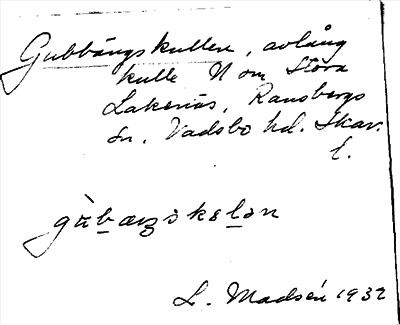 Gubbängskullen, avlång
kulle N om Stora
Lakenäs, Ransbergs
sn. Vadsbo hd. Skar.
l.
L. Madsén 1932